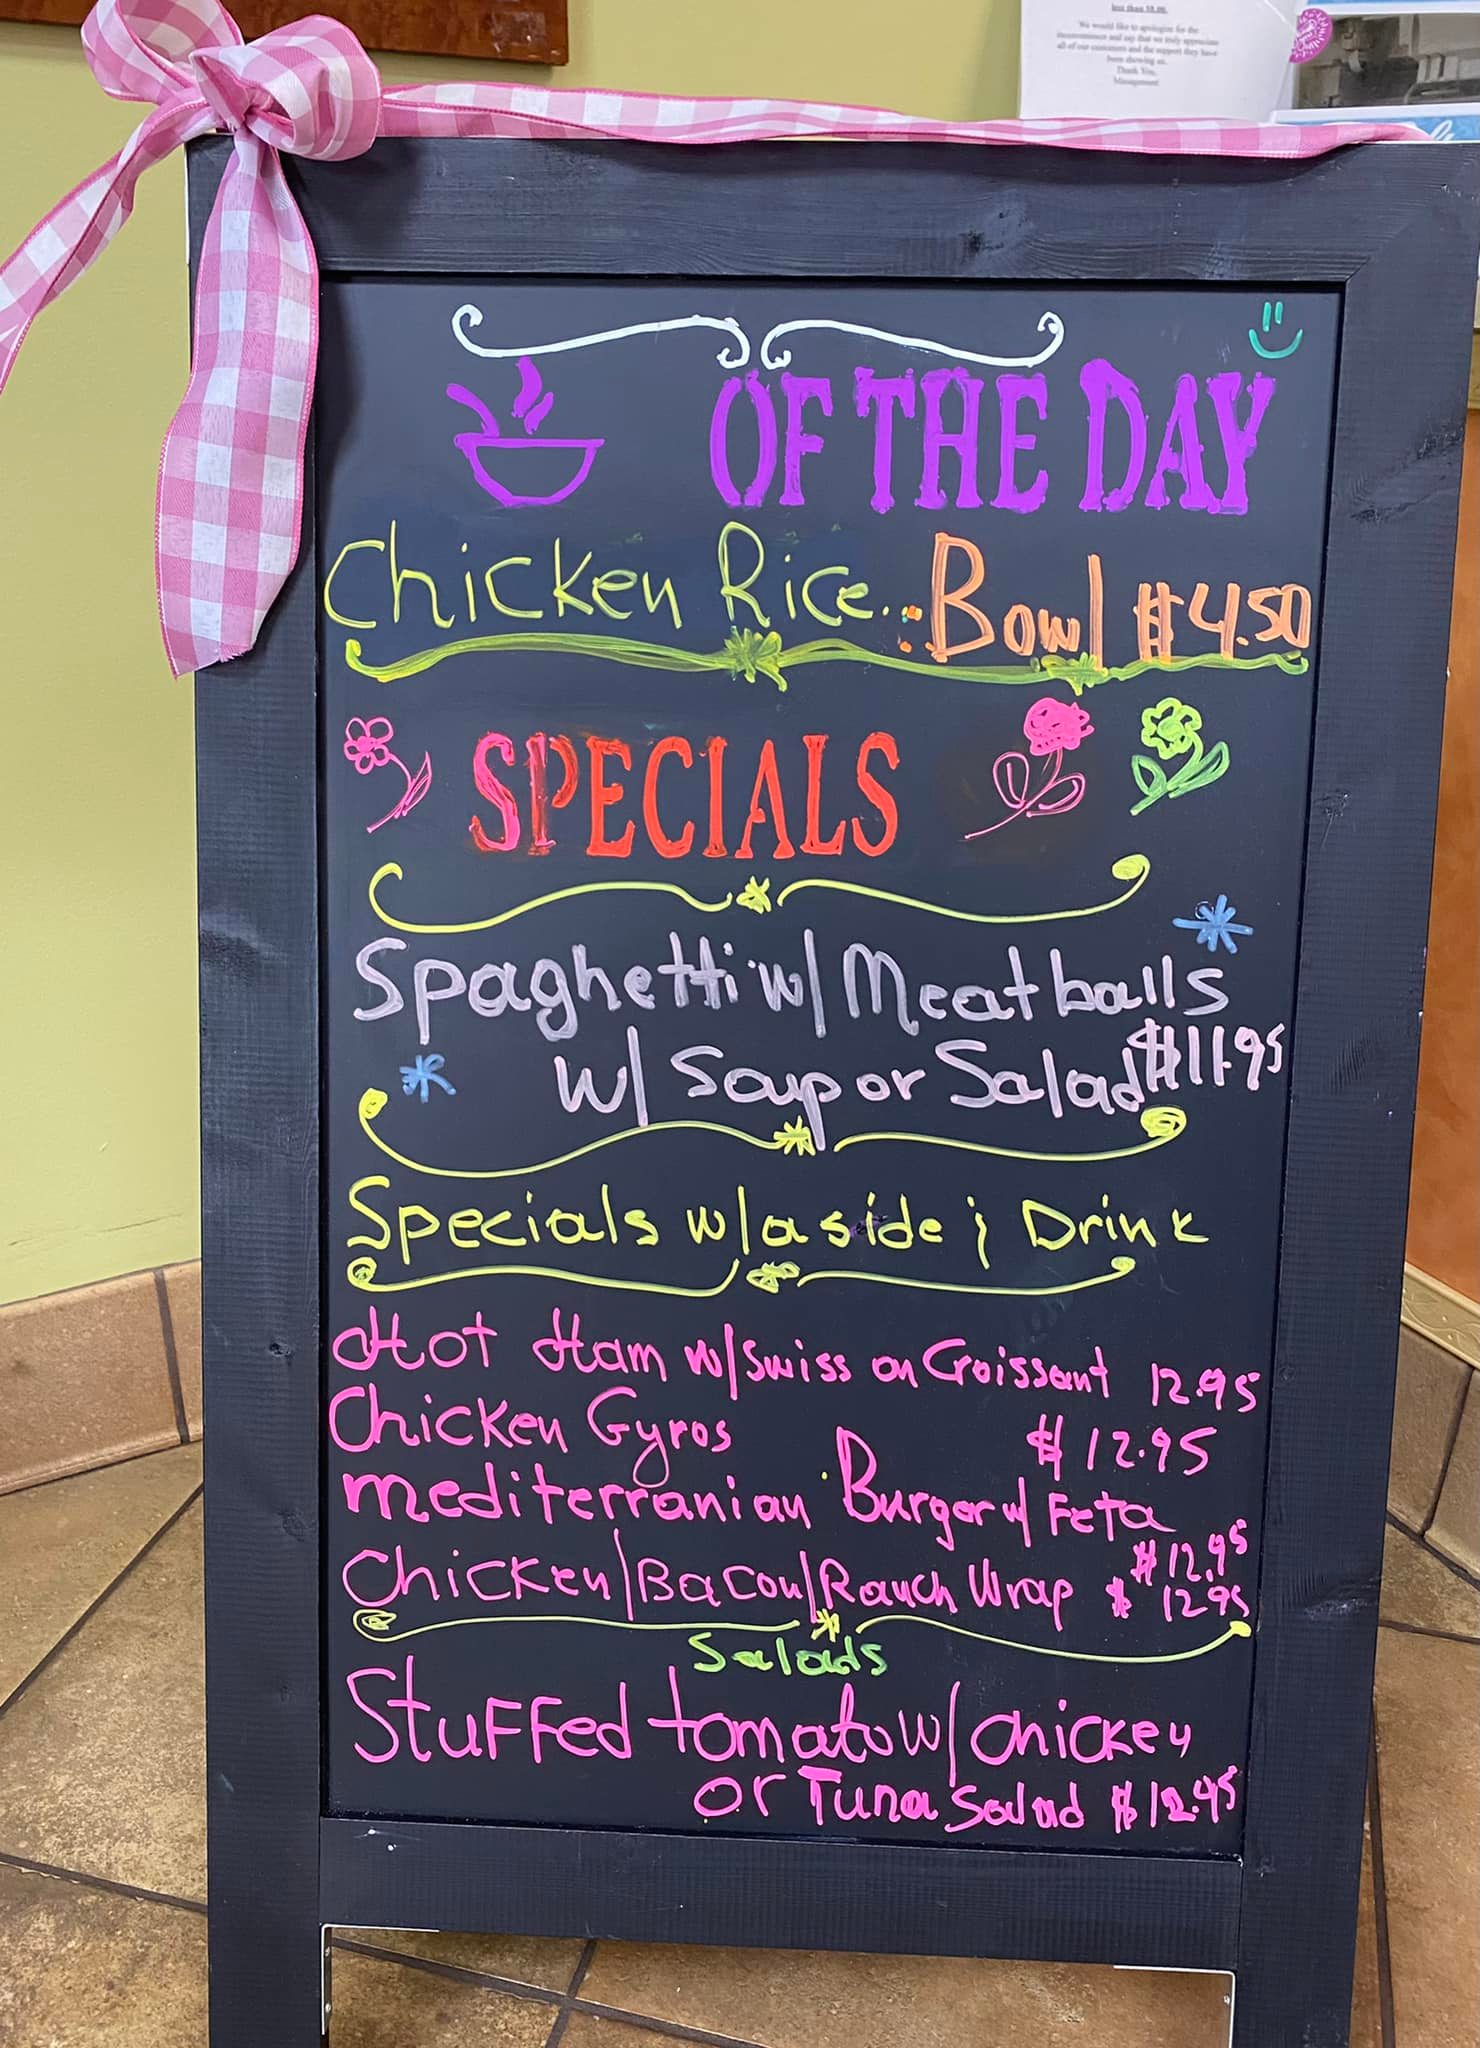 less than $8.00.
We would like to apologize for the
inconvenience and say that we truly appreciate
all of our customers and the support they have
been showing us.
Thank You,
Management
OF THE DAY
Chicken Rice... Bowl $4.50
SPECIALS
Spaghetti w/ Meatballs
w/ Soup or Salad $11.95
Specials w/a side & Drink
Hot Ham w/Swiss on Croissant 12.95
Chicken Gyros $12.95
Mediterranian Burger w/ Feta
$12.95
Chicken/Bacon/Ranch Wrap $12.95
Salads
Stuffed tomato w/ Chicken
or Tuna Salad $12.95